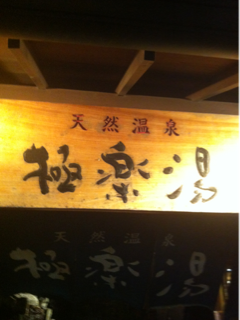 天然温泉
極楽湯
天然温泉
極楽湯